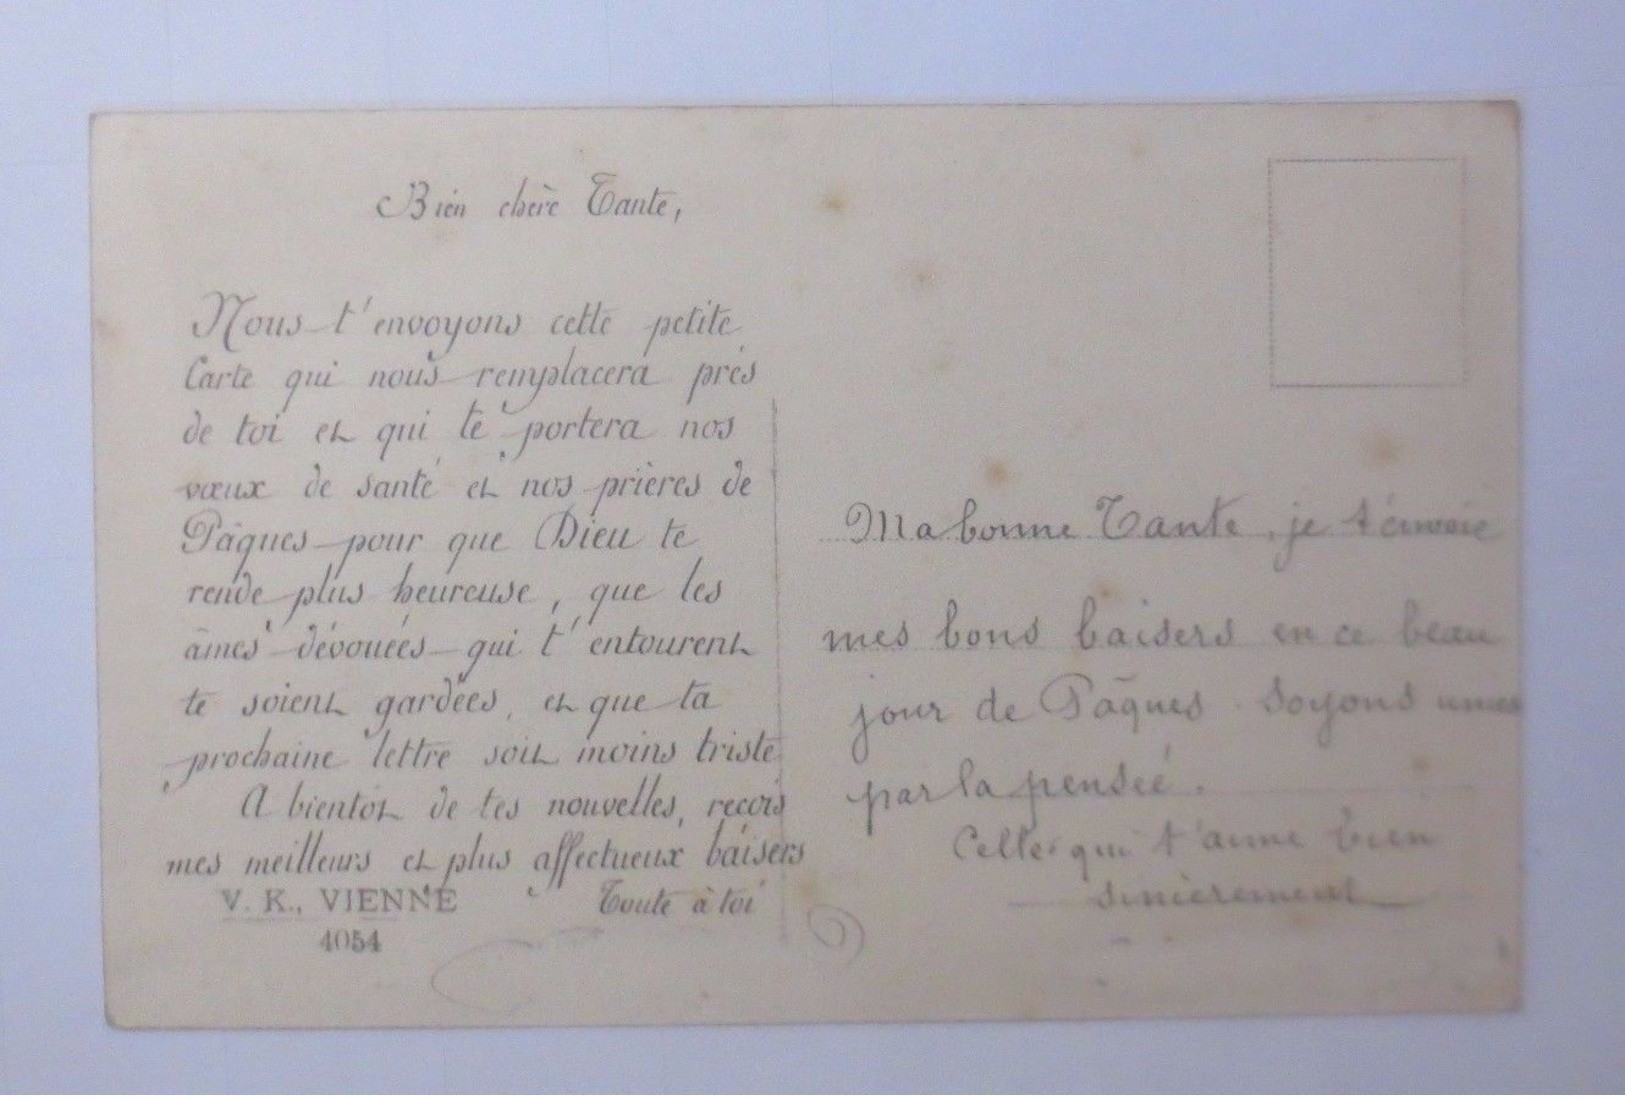 Bien chère Tante,
Nous t'envoyons cette petite
Carte qui nous remplacera près
de toi et qui te portera nos
vœux de santé et nos prières de
Pâques pour que Dieu te
rende plus heureuse, que les
âmes dévouées qui t'entourent
te soient gardées, et que ta
prochaine lettre soit moins triste
A bientôt de tes nouvelles, reçois
mes meilleurs et plus affectueux baisers
Toute à toi
V. K., VIENNE
4054
Ma bonne Tante, je t'envoie
mes bons baisers en ce beau
jour de Pâques. Soyons unies
par la pensée.
Celle qui t'aime bien
sincèrement